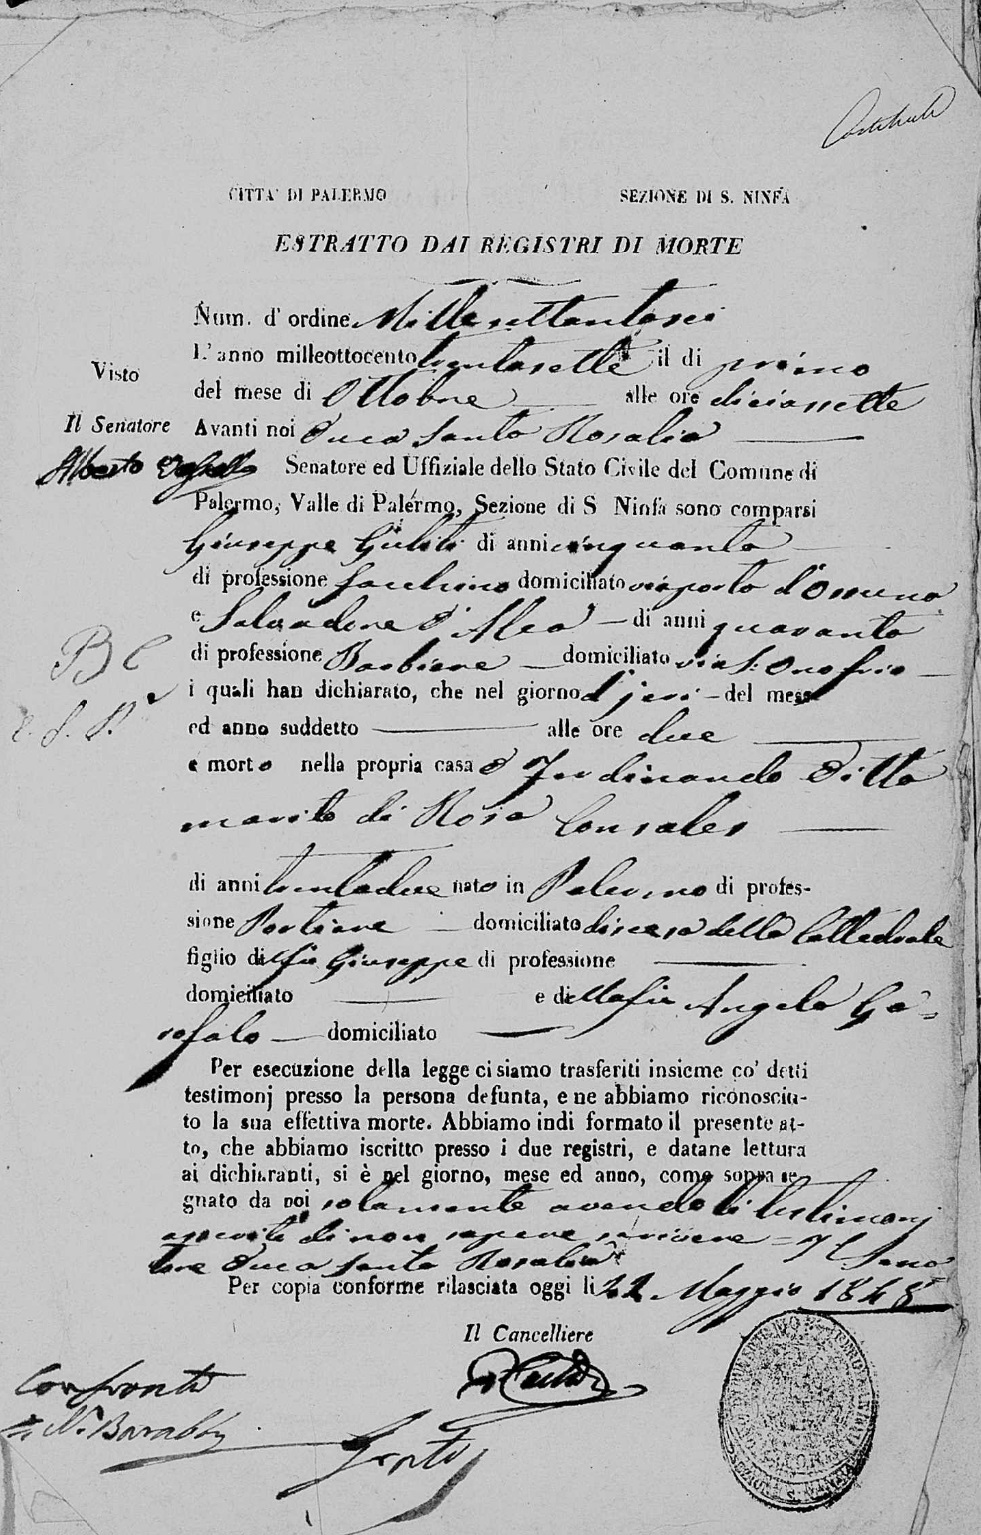 CITTA' DI PALERMO SEZIONE DI S. NINFA
ESTRATTO DAI REGISTRI DI MORTE
Num. d' ordine Millesettantasei
L' anno milleottocento trentasette il di primo
Visto
del mese di Ottobre alle ore diciassette
Il Senatore Avanti noi Duca Santa Rosalia
Alberto Senatore ed Uffiziale dello Stato Civile del Comune di
Palermo, Valle di Palermo, Sezione di S Ninfa sono comparsi
Giuseppe di anni cinquanta
di professione Facchino domiciliato via porto d'Ossuna
e Salvadore D'Aleo di anni quaranta
di professione Barbiere domiciliato via S. Onofrio
i quali han dichiarato, che nel giorno d'jeri del mese
ed anno suddetto alle ore due
e morto nella propria casa D Ferdinando Ditta
marito di Rosa Consales
di anni trentadue nato in Palermo di profes-
sione Portiere domiciliato discesa della Cattedrale
figlio di fu Giuseppe di professione
domiciliato e di fu Angela Ga-
rofalo domiciliato
Per esecuzione della legge ci siamo trasferiti insieme co' detti
testimonj presso la persona defunta, e ne abbiamo riconosciu-
to la sua effettiva morte. Abbiamo indi formato il presente at-
to, che abbiamo iscritto presso i due registri, e datane lettura
ai dichiaranti, si è nel giorno, mese ed anno, come sopra se-
gnato da noi solamente avendo li testimonj
asserito di non sapere scrivere = Il Sena
tore Duca Santa Rosalia
Per copia conforme rilasciata oggi li 22 Maggio 1848
Il Cancelliere
Confrontato
N. Barabby